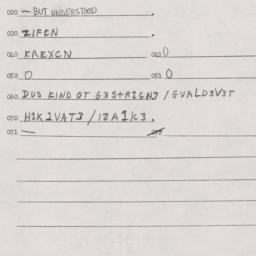 020 — BUT UNDERSTOOD .
030 ZIFCN .
040 KREXCN 041 0
050 0 051 0
060 DUS KIND OT G3S+RIGN3 / GVALD3V3T
070 H1K1VAT3 / IZA1K3 .
071 —